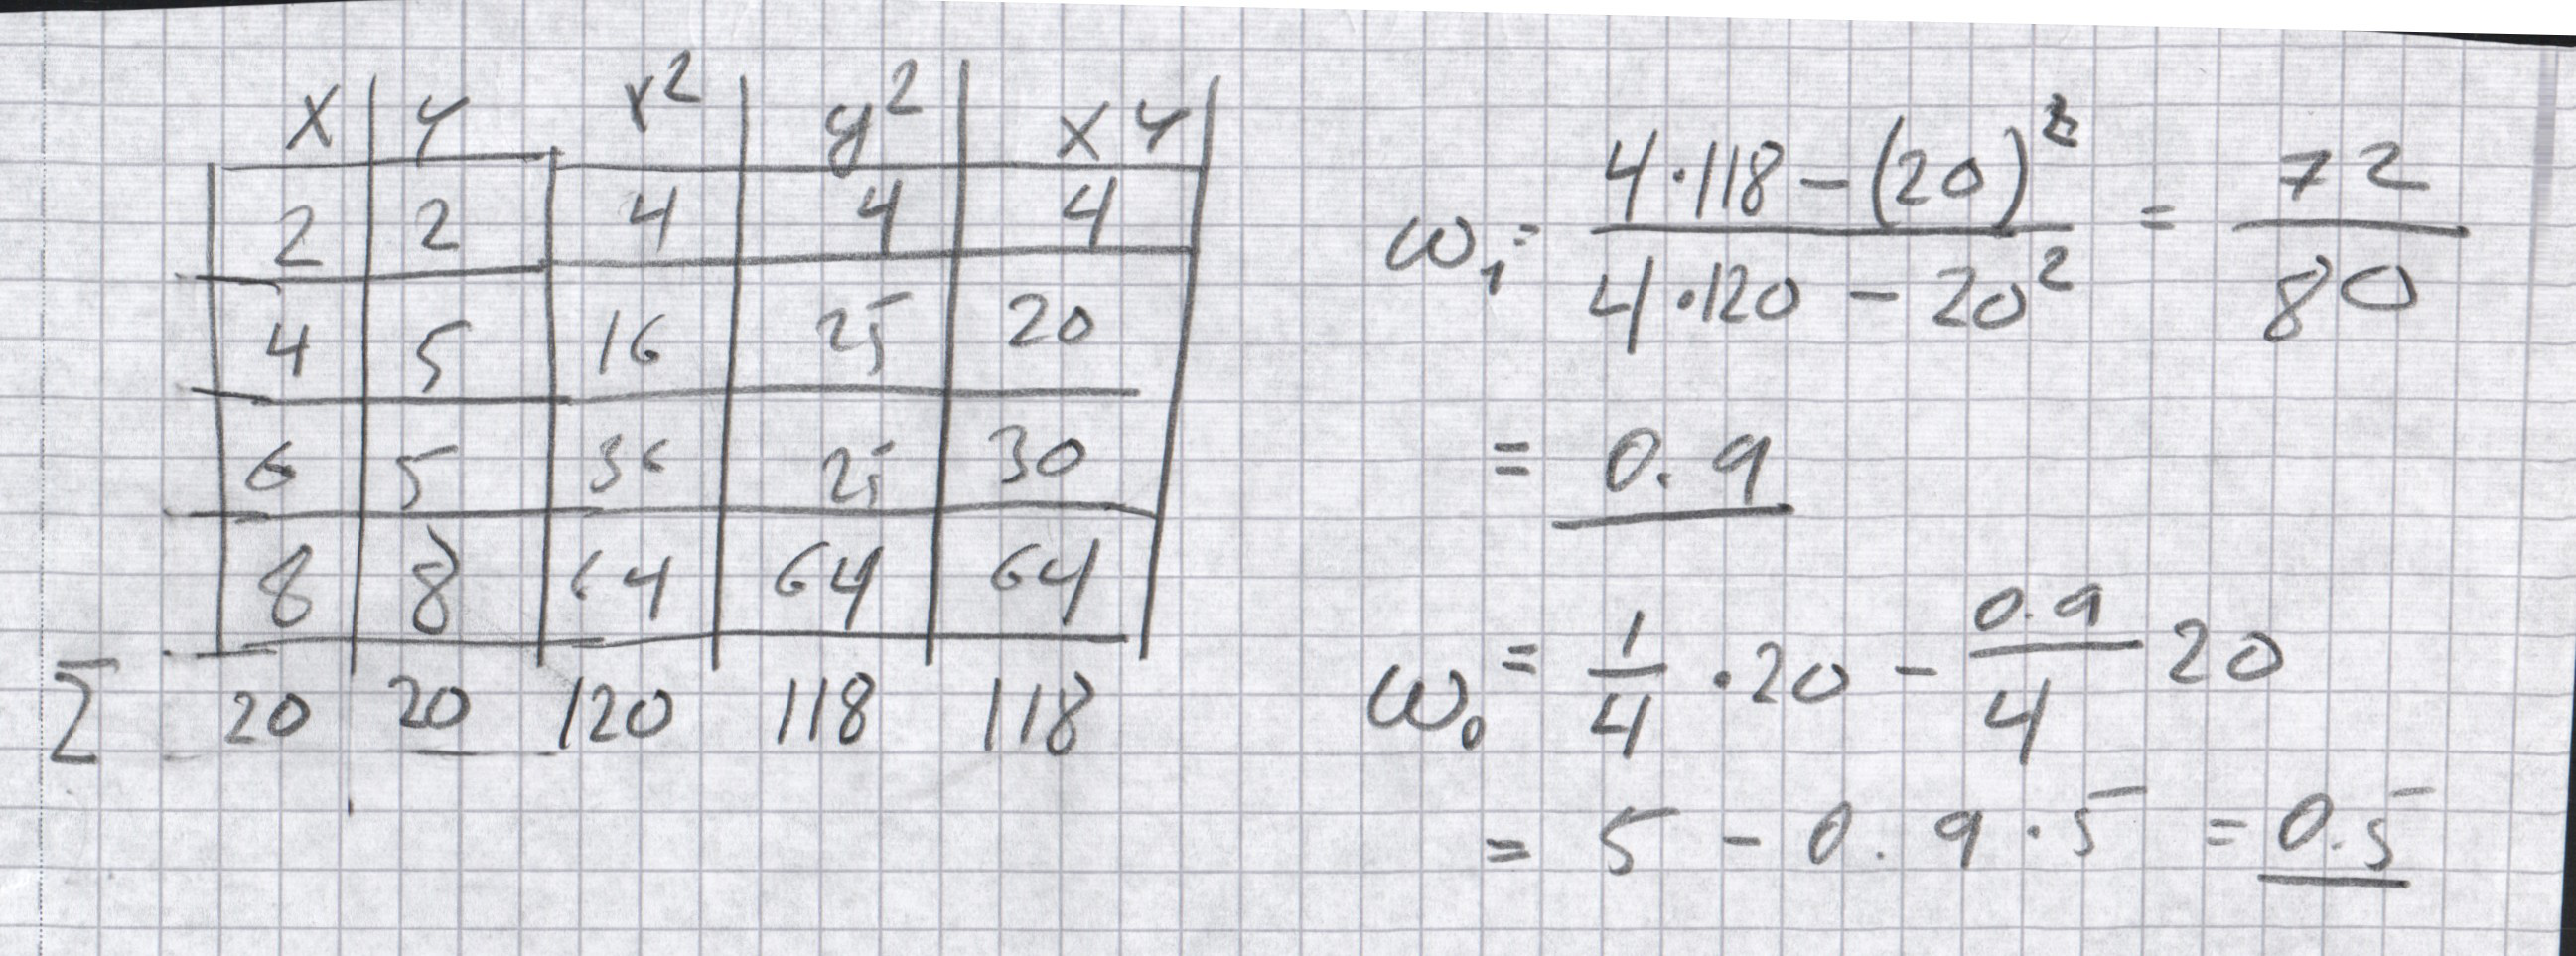 x y x² y² xy
2 2 4 4 4
4 5 16 25 20
6 5 36 25 30
8 8 64 64 64
Σ 20 20 120 118 118
ω₁ = (4·118 − (20)²) / (4·120 − 20²) = 72 / 80
= 0.9
ω₀ = 1/4 · 20 − 0.9/4 20
= 5 − 0.9 · 5 = 0.5